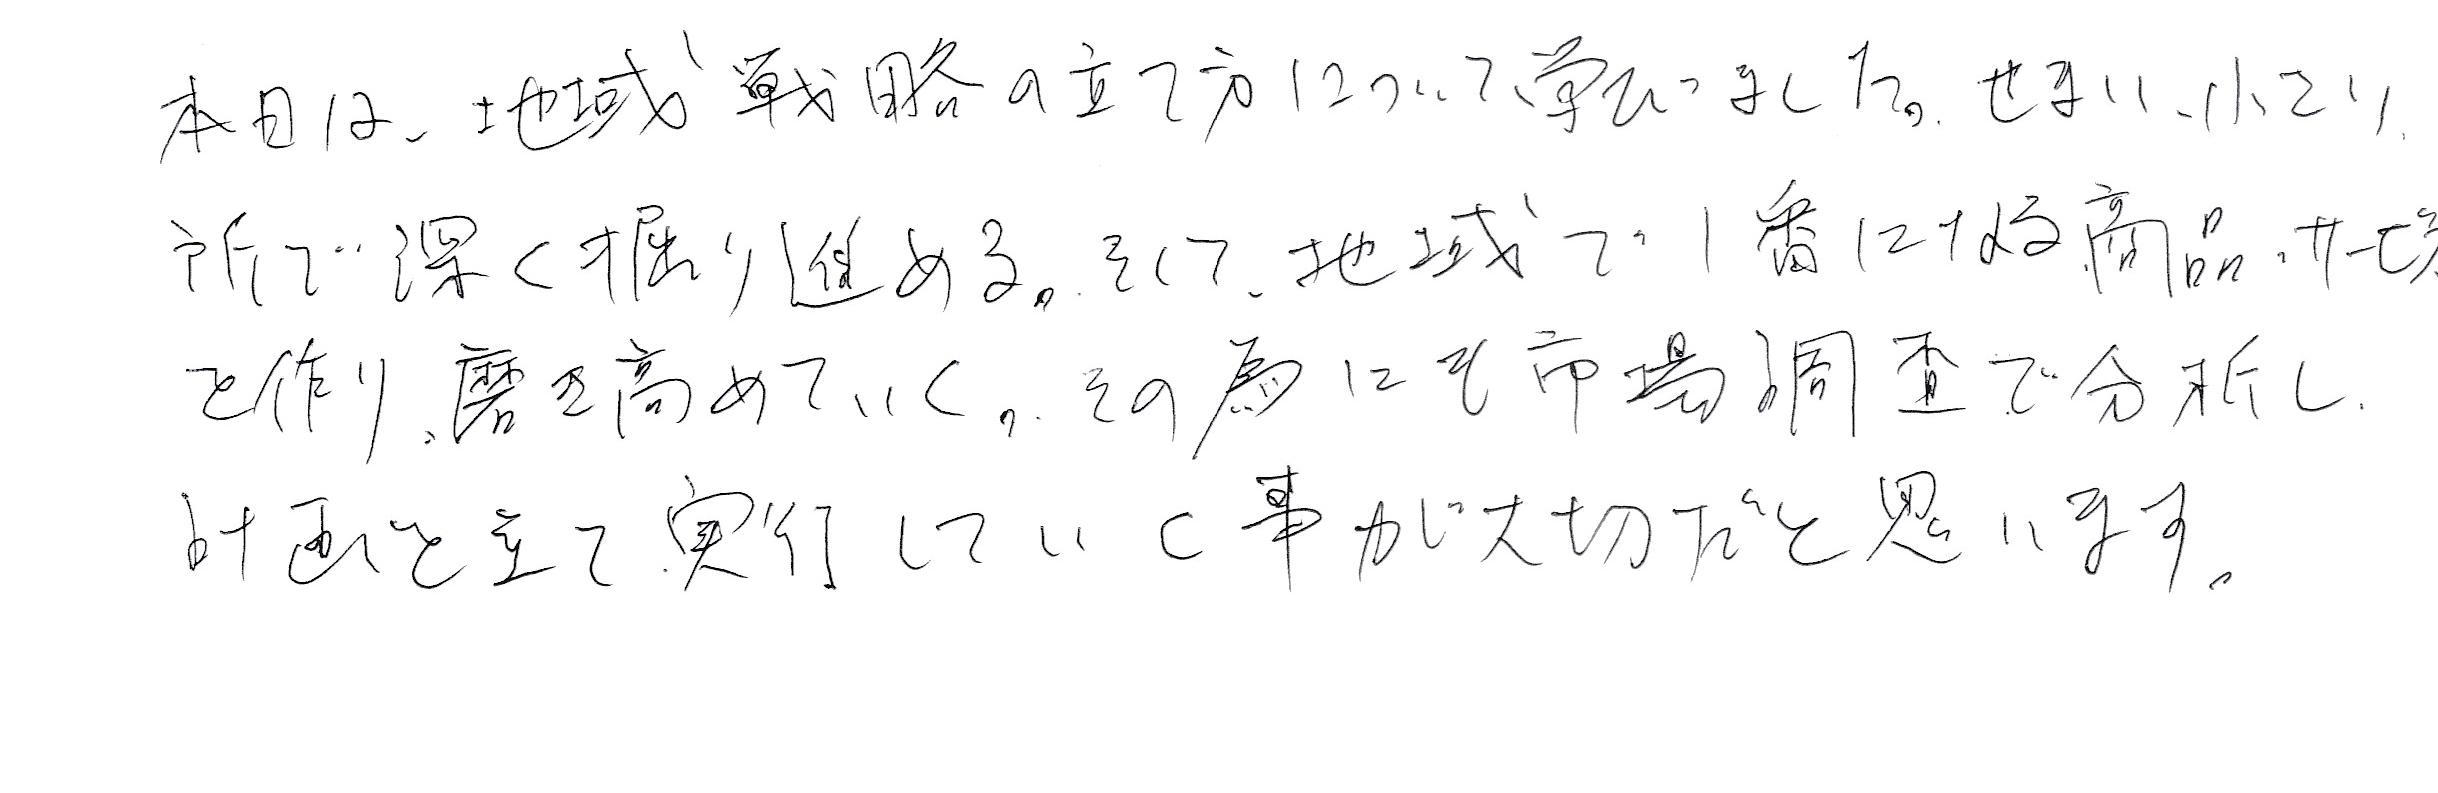 本日は、地域戦略の立て方について学びました。せまい、小さい
所で深く掘り進める。そして、地域で1番になる商品・サービス
を作り、磨き高めていく。その為にも市場調査で分析し、
計画を立て実行していく事が大切だと思います。